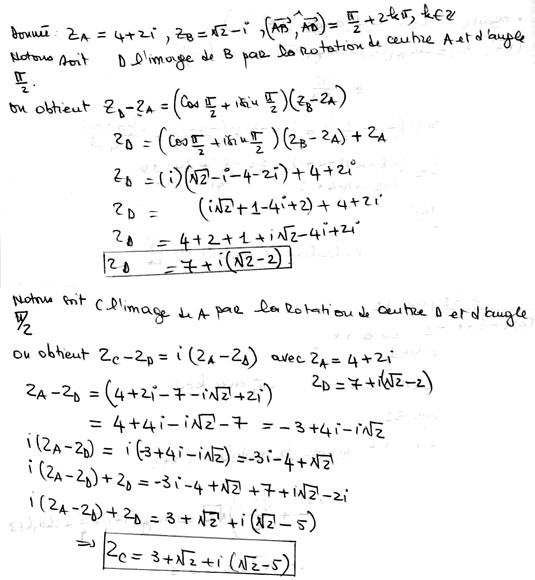 Donné: Z_A = 4+2i, Z_B = √2-i, (\vec{AB}, \vec{AD}) = π/2 + 2kπ, k∈Z
Notons soit D l'image de B par la Rotation de centre A et d'angle
π/2.
on obtient Z_D-Z_A = (Cos π/2 + i sin π/2)(Z_B-Z_A)
Z_D = (Cos π/2 + i sin π/2)(Z_B-Z_A) + Z_A
Z_D = (i)(√2-i-4-2i)+4+2i
Z_D = (i√2+1-4i+2)+4+2i
Z_D = 4+2+1+i√2-4i+2i
Z_D = 7+i(√2-2)
Notons soit C l'image de A par la Rotation de centre D et d'angle
π/2
on obtient Z_C-Z_D = i(Z_A-Z_D) avec Z_A = 4+2i
Z_A-Z_D = (4+2i-7-i√2+2i) Z_D = 7+i(√2-2)
= 4+4i-i√2-7 = -3+4i-i√2
i(Z_A-Z_D) = i(-3+4i-i√2) = -3i-4+√2
i(Z_A-Z_D)+Z_D = -3i-4+√2+7+i√2-2i
i(Z_A-Z_D)+Z_D = 3+√2+i(√2-5)
⇒ Z_C = 3+√2+i(√2-5)